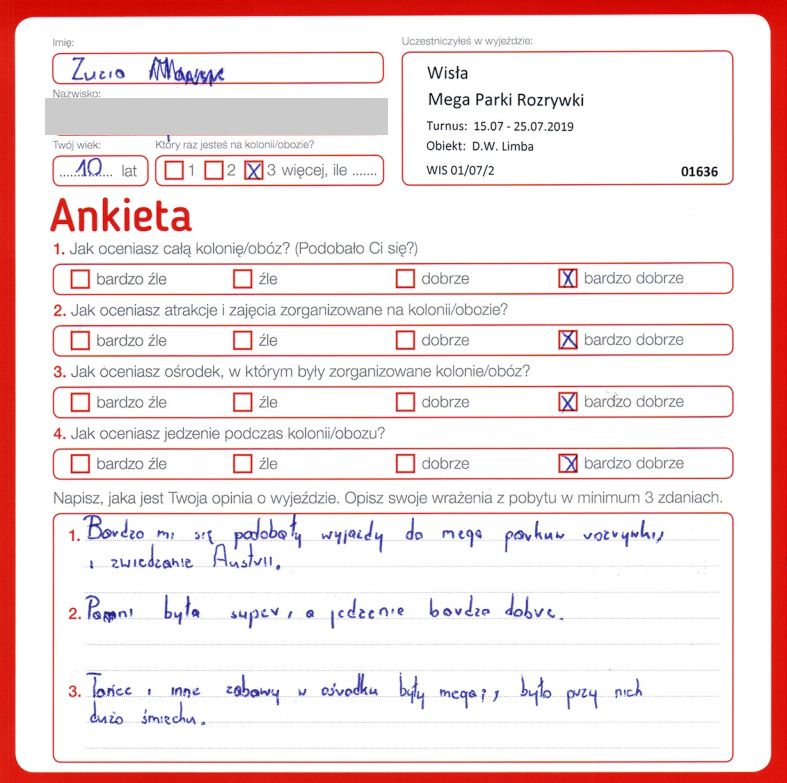 Imię:
Zucia
Nazwisko:
Twój wiek:
10 lat
Który raz jesteś na kolonii/obozie?
1 2 X 3 więcej, ile .......
Uczestniczyłeś w wyjeździe:
Wisła
Mega Parki Rozrywki
Turnus: 15.07 - 25.07.2019
Obiekt: D.W. Limba
WIS 01/07/2 01636
Ankieta
1. Jak oceniasz całą kolonię/obóz? (Podobało Ci się?)
bardzo źle źle dobrze X bardzo dobrze
2. Jak oceniasz atrakcje i zajęcia zorganizowane na kolonii/obozie?
bardzo źle źle dobrze X bardzo dobrze
3. Jak oceniasz ośrodek, w którym były zorganizowane kolonie/obóz?
bardzo źle źle dobrze X bardzo dobrze
4. Jak oceniasz jedzenie podczas kolonii/obozu?
bardzo źle źle dobrze X bardzo dobrze
Napisz, jaka jest Twoja opinia o wyjeździe. Opisz swoje wrażenia z pobytu w minimum 3 zdaniach.
1. Bardzo mi się podobały wyjazdy do mega parkuw rozrywki,
i zwiedzanie Austrii.
2. Pani była super, a jedzenie bardzo dobre.
3. Tańce i inne zabawy w ośrodku były mega, było przy nich
dużo śmiechu.